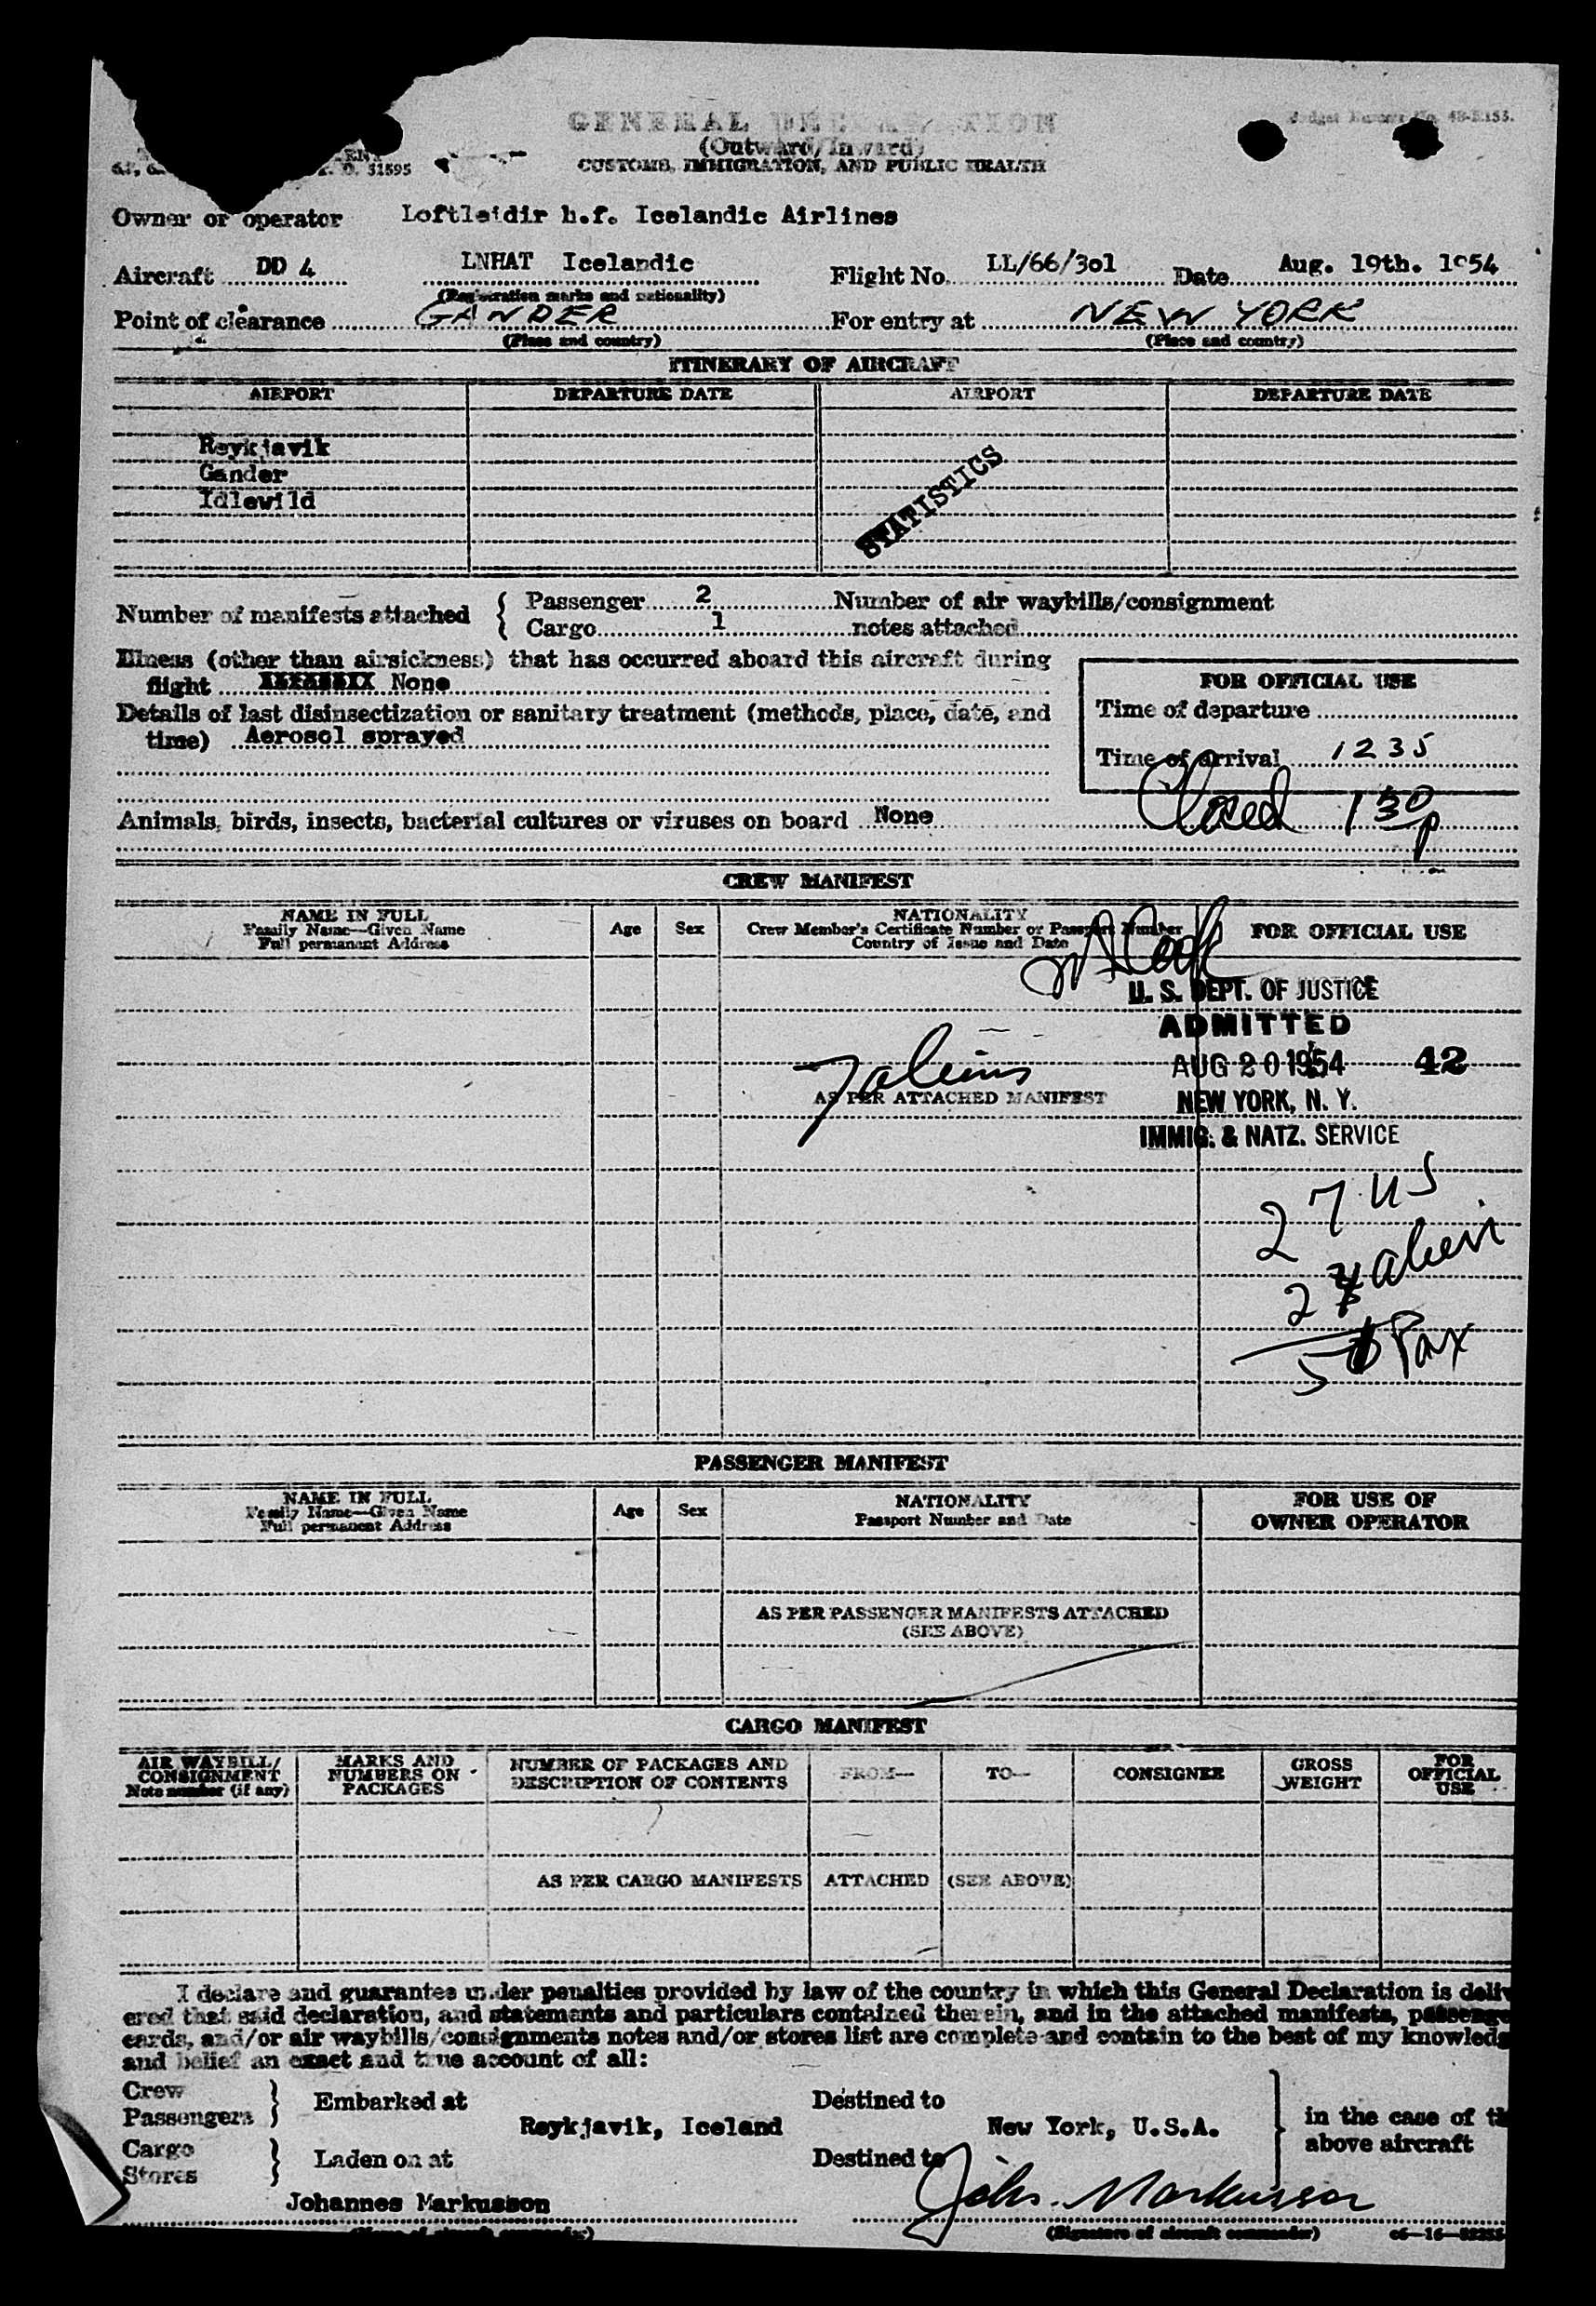 GENERAL DECLARATION
(Outward/Inward)
CUSTOMS, IMMIGRATION, AND PUBLIC HEALTH
Budget Bureau No. 43-R153.
T. D. 51595
Owner or operator Loftleidir h.f. Icelandic Airlines
Aircraft DD 4 LNHAT Icelandic Flight No. LL/66/3o1 Date Aug. 19th. 1954
(Registration marks and nationality)
Point of clearance GANDER For entry at NEW YORK
(Place and country) (Place and country)
ITINERARY OF AIRCRAFT
AIRPORT DEPARTURE DATE AIRPORT DEPARTURE DATE
Reykjavik
Gander
Idlewild
STATISTICS
Number of manifests attached { Passenger 2 Number of air waybills/consignment
Cargo 1 notes attached
Illness (other than airsickness) that has occurred aboard this aircraft during
flight None
Details of last disinsectization or sanitary treatment (methods, place, date, and
time) Aerosol sprayed
FOR OFFICIAL USE
Time of departure
Time of arrival 1235
Closed 1 30 p
Animals, birds, insects, bacterial cultures or viruses on board None
CREW MANIFEST
NAME IN FULL
Family Name—Given Name
Full permanent Address
Age Sex
NATIONALITY
Crew Member's Certificate Number or Passport Number
Country of Issue and Date
FOR OFFICIAL USE
U. S. DEPT. OF JUSTICE
ADMITTED
AUG 20 1954 42
NEW YORK, N. Y.
IMMIG. & NATZ. SERVICE
7 aliens
AS PER ATTACHED MANIFEST
27 US
aliens
Pax
PASSENGER MANIFEST
NAME IN FULL
Family Name—Given Name
Full permanent Address
Age Sex
NATIONALITY
Passport Number and Date
FOR USE OF
OWNER OPERATOR
AS PER PASSENGER MANIFESTS ATTACHED
(SEE ABOVE)
CARGO MANIFEST
AIR WAYBILL/
CONSIGNMENT
Note number (if any)
MARKS AND
NUMBERS ON
PACKAGES
NUMBER OF PACKAGES AND
DESCRIPTION OF CONTENTS
FROM— TO— CONSIGNEE
GROSS
WEIGHT
FOR
OFFICIAL
USE
AS PER CARGO MANIFESTS ATTACHED (SEE ABOVE)
I declare and guarantee under penalties provided by law of the country in which this General Declaration is deliv
ered that said declaration, and statements and particulars contained therein, and in the attached manifests, passenge
cards, and/or air waybills/consignments notes and/or stores list are complete and contain to the best of my knowledg
and belief an exact and true account of all:
Crew
Passengers } Embarked at Destined to
Reykjavik, Iceland New York, U.S.A. } in the case of th
above aircraft
Cargo
Stores } Laden on at Destined to
Johannes Markusson Johs. Markusson
(Name of aircraft commander) (Signature of aircraft commander)